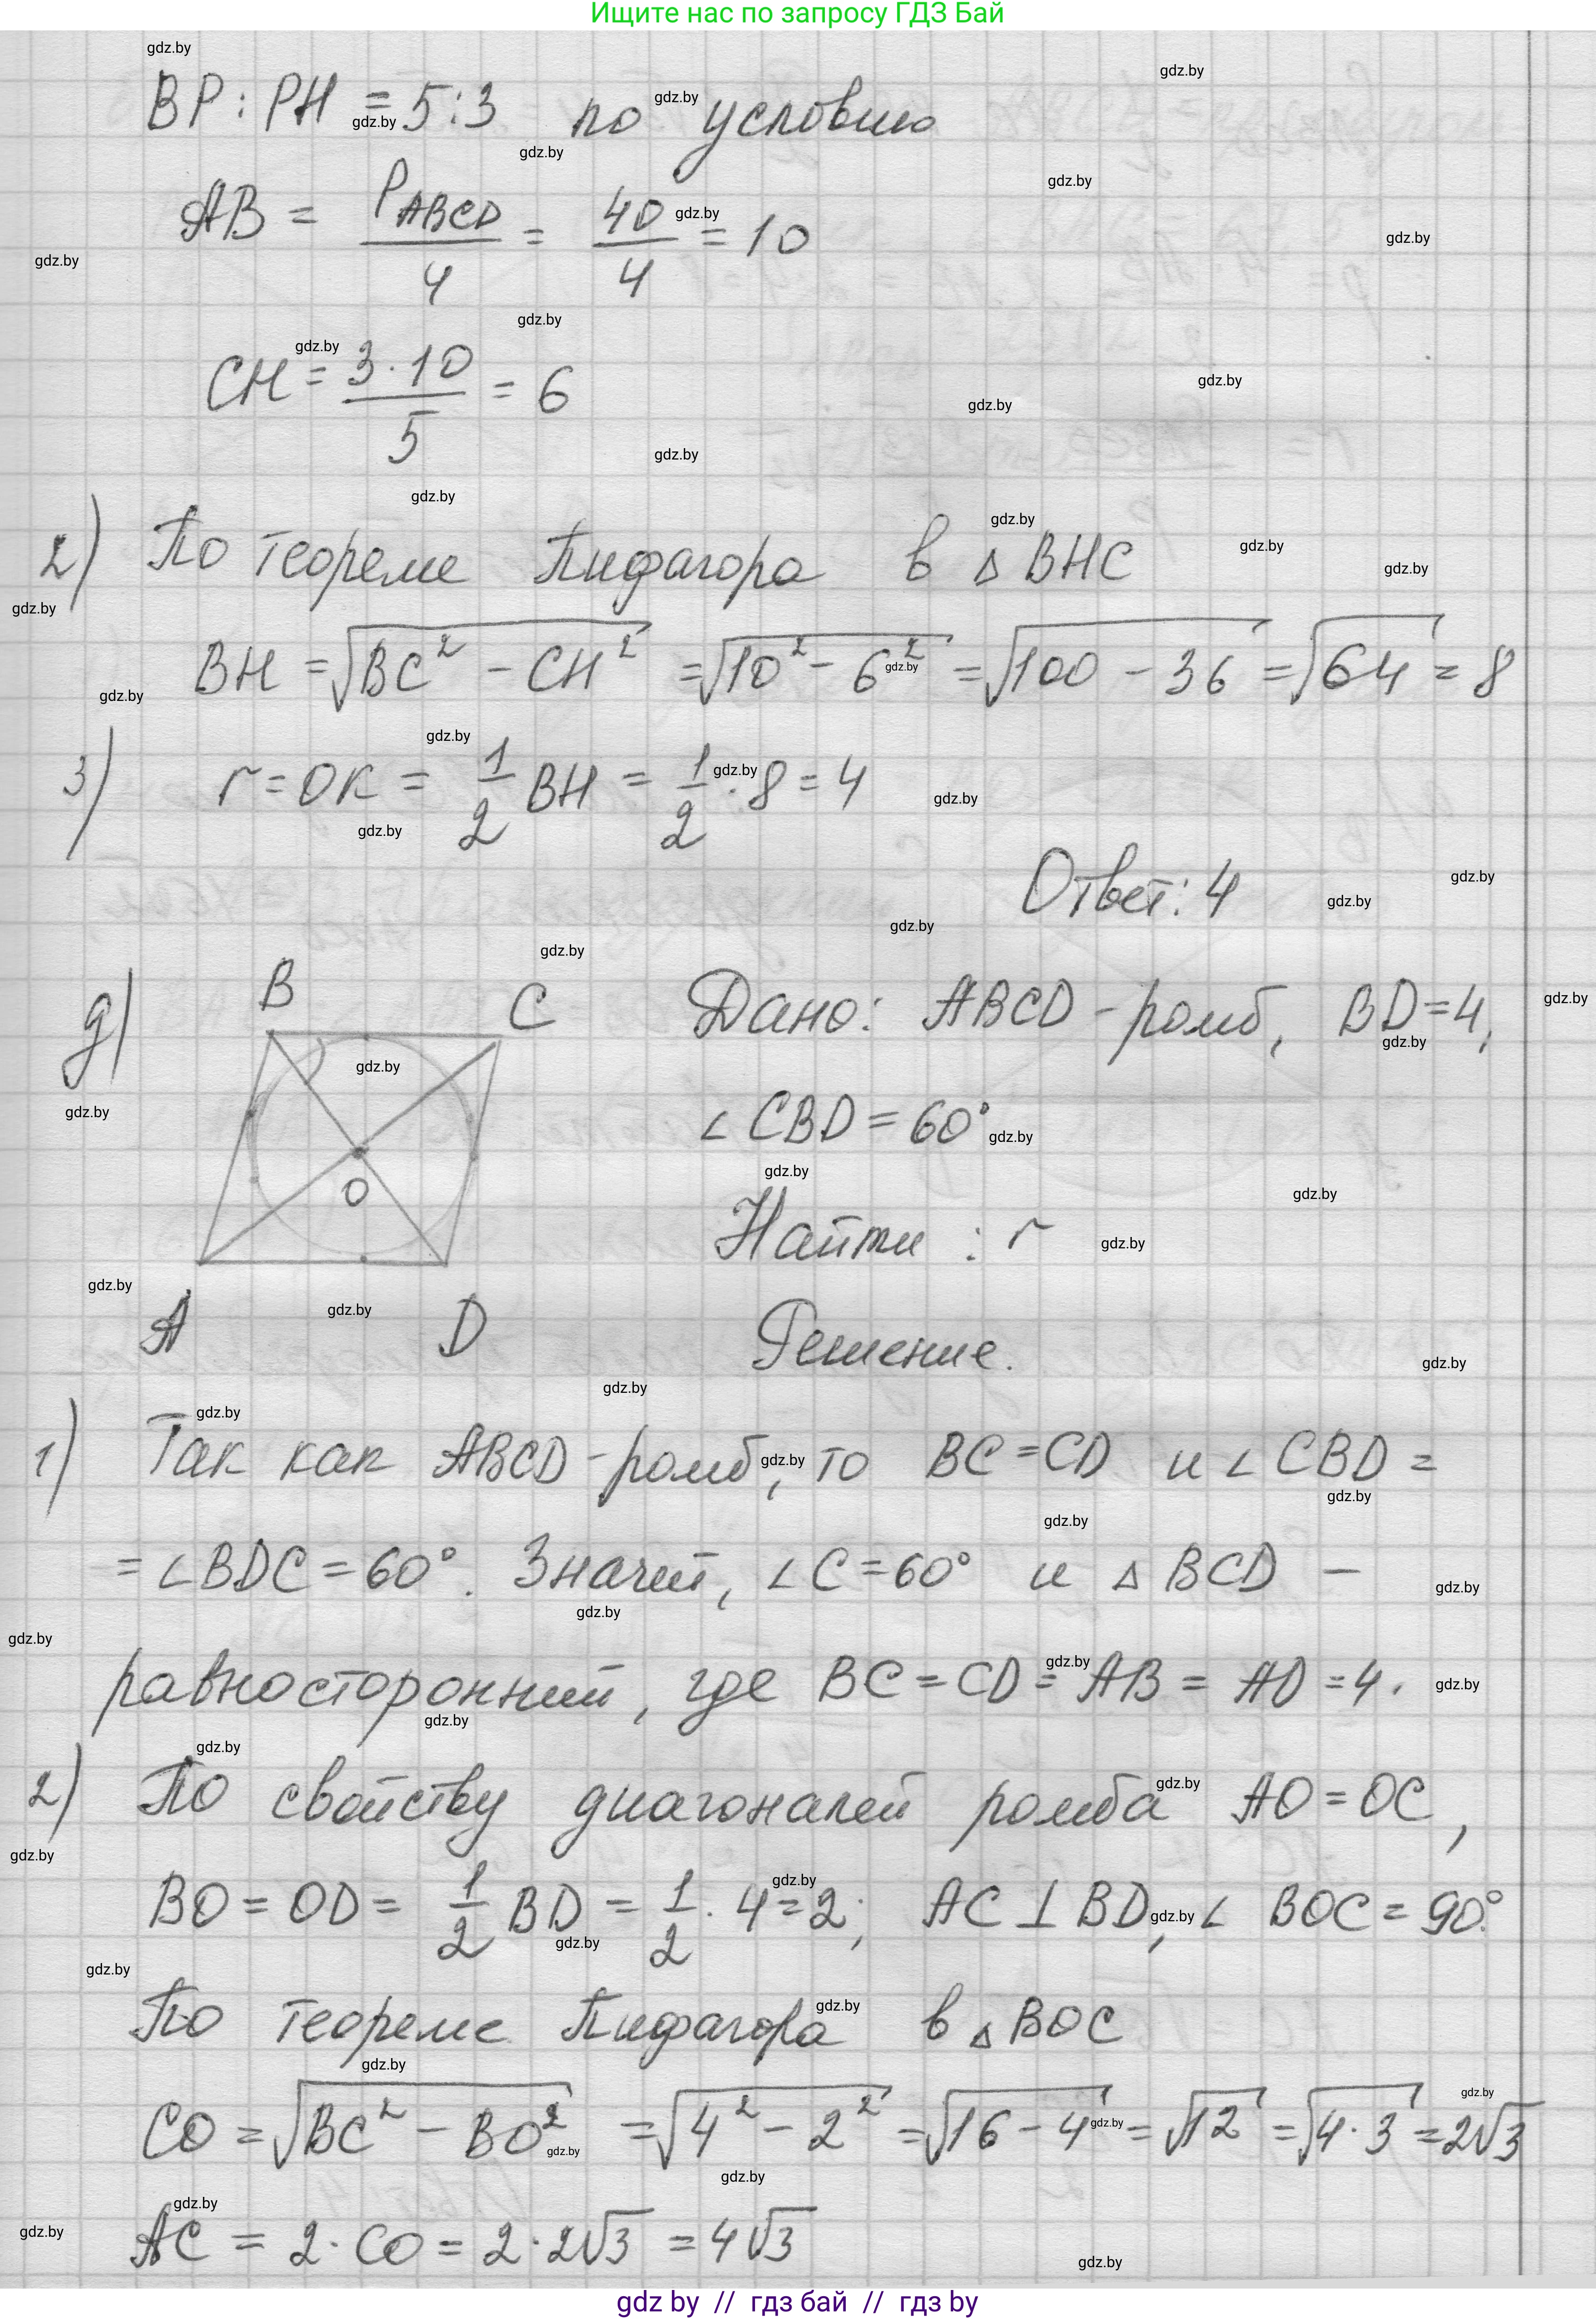 Ищите нас по запросу ГДЗ Бай
BP : PH = 5 : 3 по условию
AB = P_ABCD / 4 = 40 / 4 = 10
CH = 3 · 10 / 5 = 6
2) По теореме Пифагора в △ BHC
BH = √(BC² - CH²) = √(10² - 6²) = √(100 - 36) = √64 = 8
3) r = OK = 1/2 BH = 1/2 · 8 = 4
Ответ: 4
д)
B
C
O
A
D
Дано: ABCD - ромб, BD = 4,
∠ CBD = 60°
Найти : r
Решение.
1) Так как ABCD - ромб, то BC = CD и ∠ CBD =
= ∠ BDC = 60°. Значит, ∠ C = 60° и △ BCD -
равносторонний, где BC = CD = AB = AD = 4.
2) По свойству диагоналей ромба AO = OC,
BO = OD = 1/2 BD = 1/2 · 4 = 2; AC ⊥ BD, ∠ BOC = 90°.
По теореме Пифагора в △ BOC
CO = √(BC² - BO²) = √(4² - 2²) = √(16 - 4) = √12 = √(4 · 3) = 2√3
AC = 2 · CO = 2 · 2√3 = 4√3
gdz by // гдз бай // гдз by